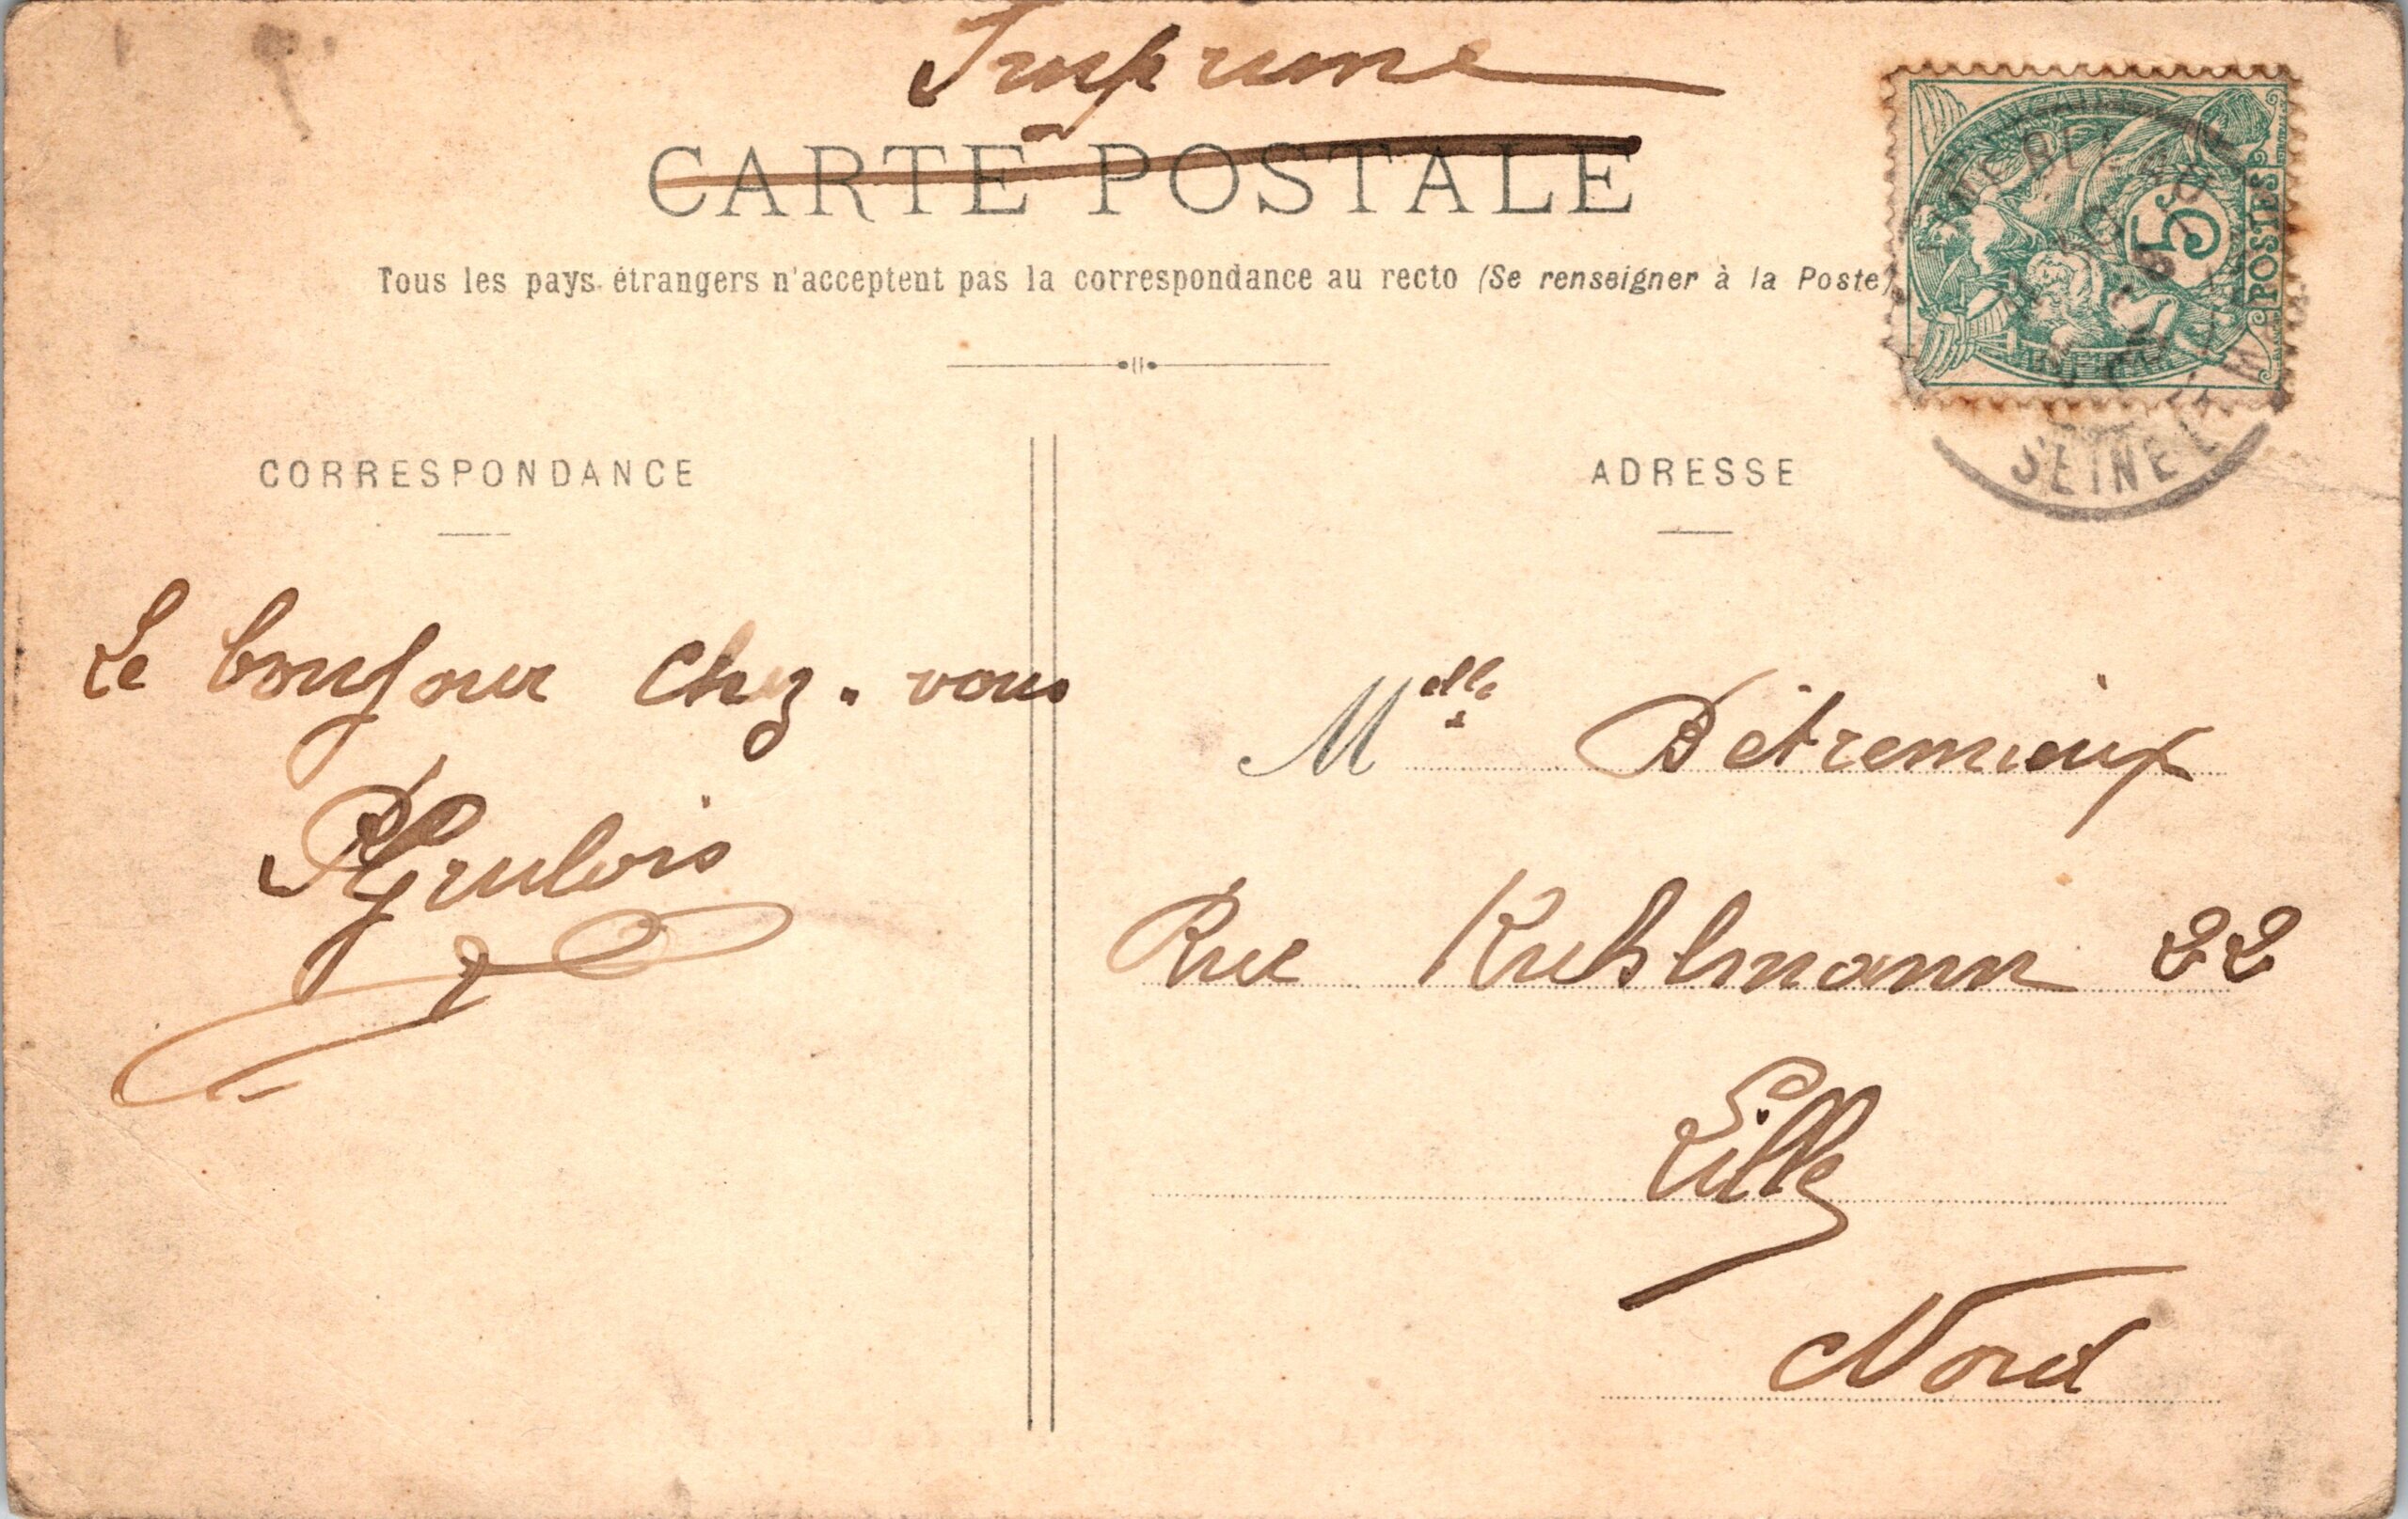 Imprimé
CARTE POSTALE
Tous les pays étrangers n'acceptent pas la correspondance au recto (Se renseigner à la Poste)
5
POSTES
SEINE
CORRESPONDANCE
ADRESSE
Le bonjour chez-vous
Grulois
Melle Détremieux
Rue Kuhlmann 22
Lille
Nord